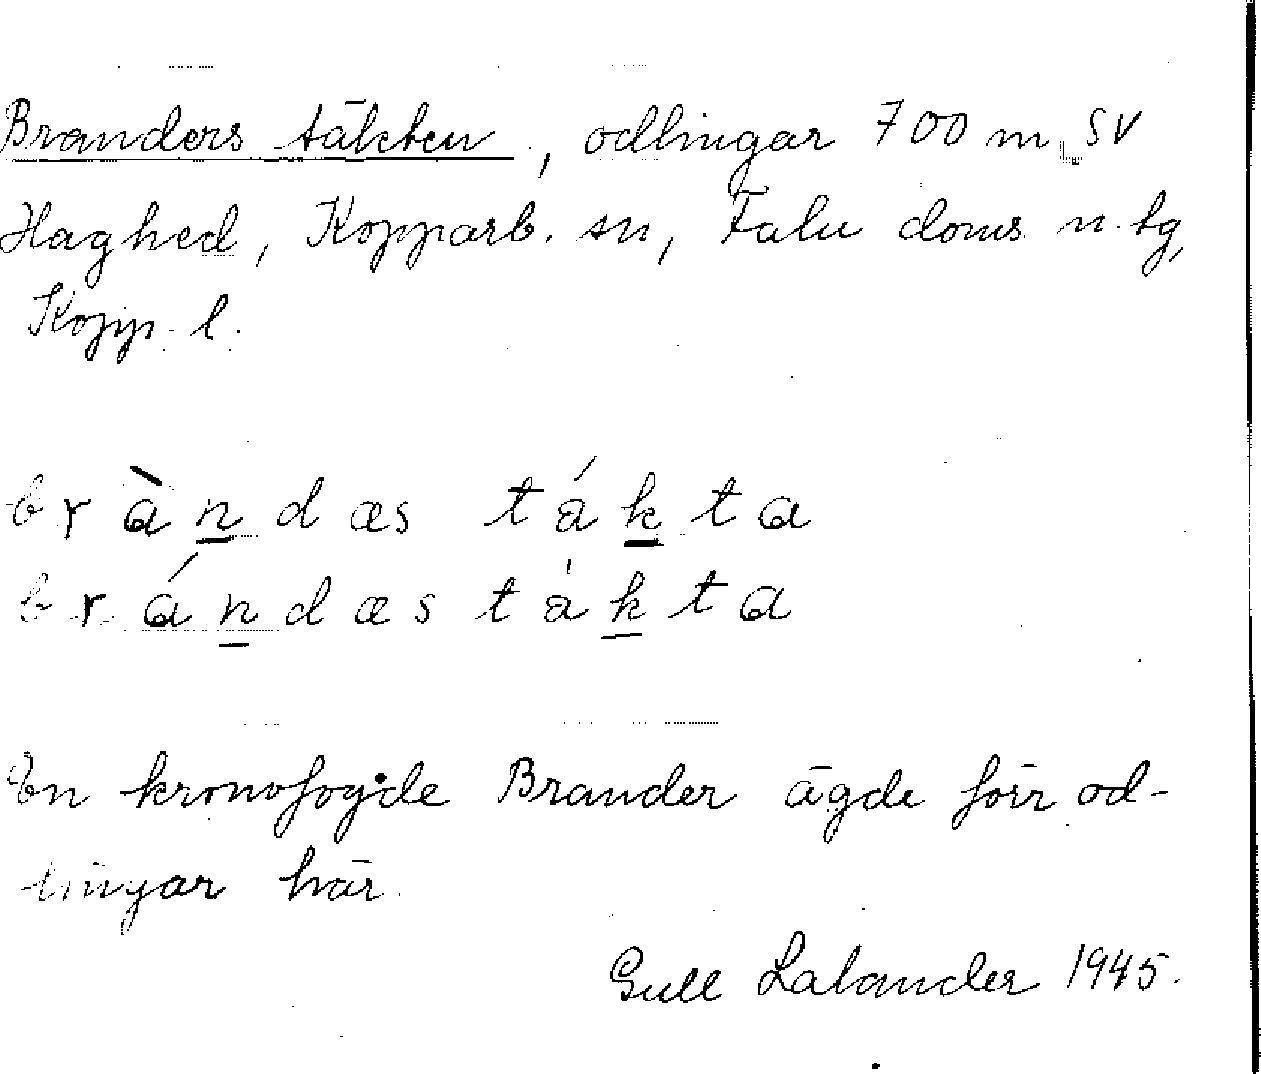 Branders täkten, odlingar 700 m SV
Haghed, Kopparb. sn, Falu doms. n. tg,
Kopp. l.
bràndæs tákta
brándæstàkta
En kronofogde Brander ägde förr od-
lingar här.
Gull Lalander 1945.